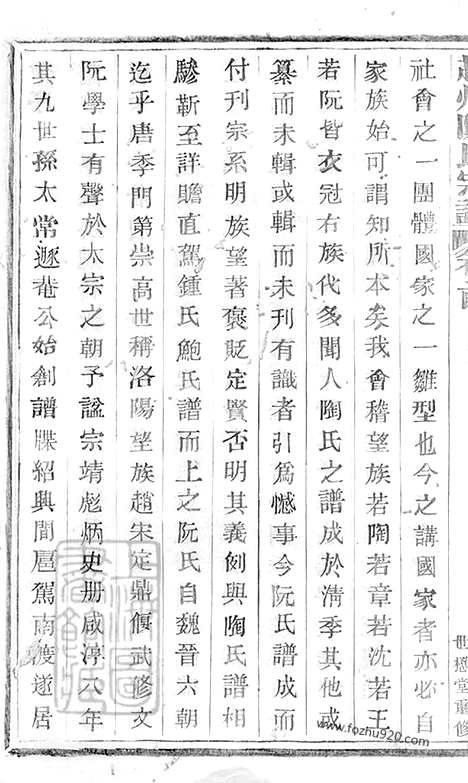 社會之一團體國家之一雛型也今之講國家者亦必自
家族始可謂知所本矣我會稽望族若陶若章若沈若王
若阮皆衣冠右族代多聞人陶氏之譜成於淸季其他或
纂而未輯或輯而未刊有識者引爲憾事今阮氏譜成而
付刊宗系明族望著褒貶定賢否明其義例與陶氏譜相
驂靳至詳贍直駕鍾氏鮑氏譜而上之阮氏自魏晉六朝
迄乎唐季門第崇高世稱洛陽望族趙宋定鼎偃武修文
阮學士有聲於太宗之朝予諡宗靖彪炳史册咸淳八年
其九世孫太常遯菴公始創譜牒紹興間扈駕南渡遂居
世懋堂重修
www.fozhu920.com